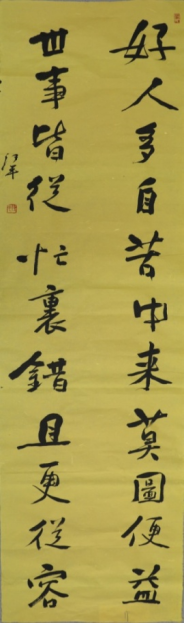 好人多自苦中来莫圖便益
世事皆從忙裏錯且更從容